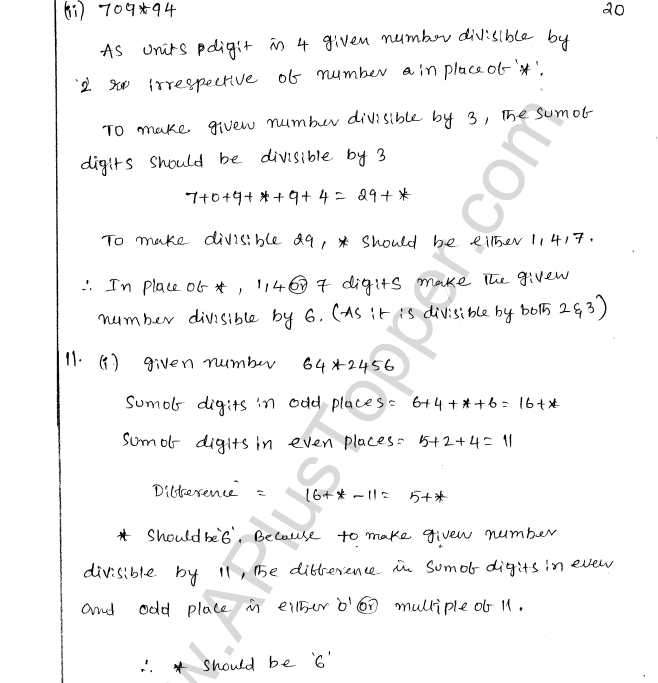 (ii) 709*94
20
As units digit is 4 given number divisible by
'2' irrespective of number a in place of '*'.
TO make given number divisible by 3, The sum of
digits should be divisible by 3
7+0+9+*+9+4 = 29+*
To make divisible 29, * should be either 1,4,7.
∴ In place of *, 1,4 or 7 digits make the given
number divisible by 6. (As it is divisible by both 2&3)
11. (i) given number 64*2456
Sum of digits in odd places = 6+4+*+6 = 16+*
Sum of digits in even places = 5+2+4 = 11
Difference = 16+*-11 = 5+*
* should be '6'. Because to make given number
divisible by 11, The difference in sum of digits in even
and odd place is either '0' or multiple of 11.
∴ * should be '6'
www.APlusTopper.com